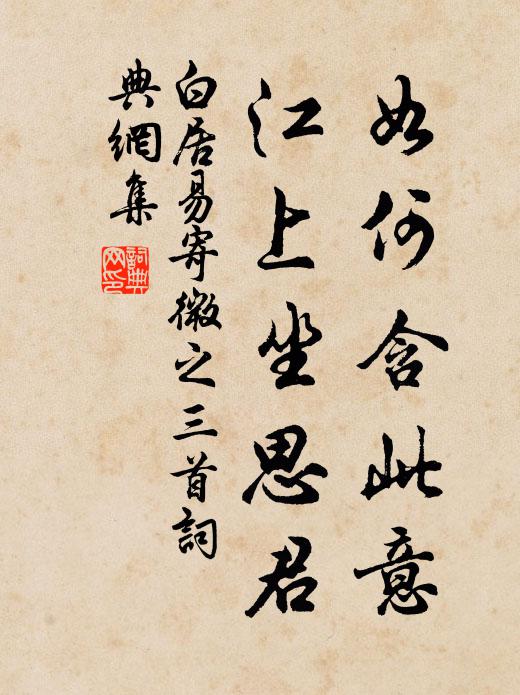 如何含此意
江上坐思君
白居易寄微之三首詞
典網集
詞典網印